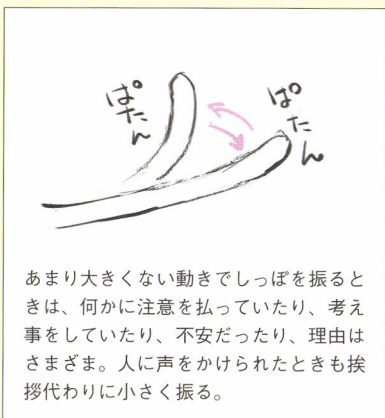 ぱたん
ぱたん
あまり大きくない動きでしっぽを振ると
きは、何かに注意を払っていたり、考え
事をしていたり、不安だったり、理由は
さまざま。人に声をかけられたときも挨
拶代わりに小さく振る。